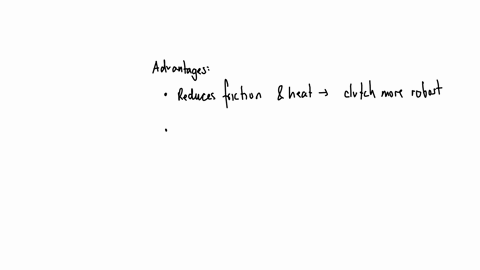 Advantages:
• Reduces friction & heat → clutch more robust
•